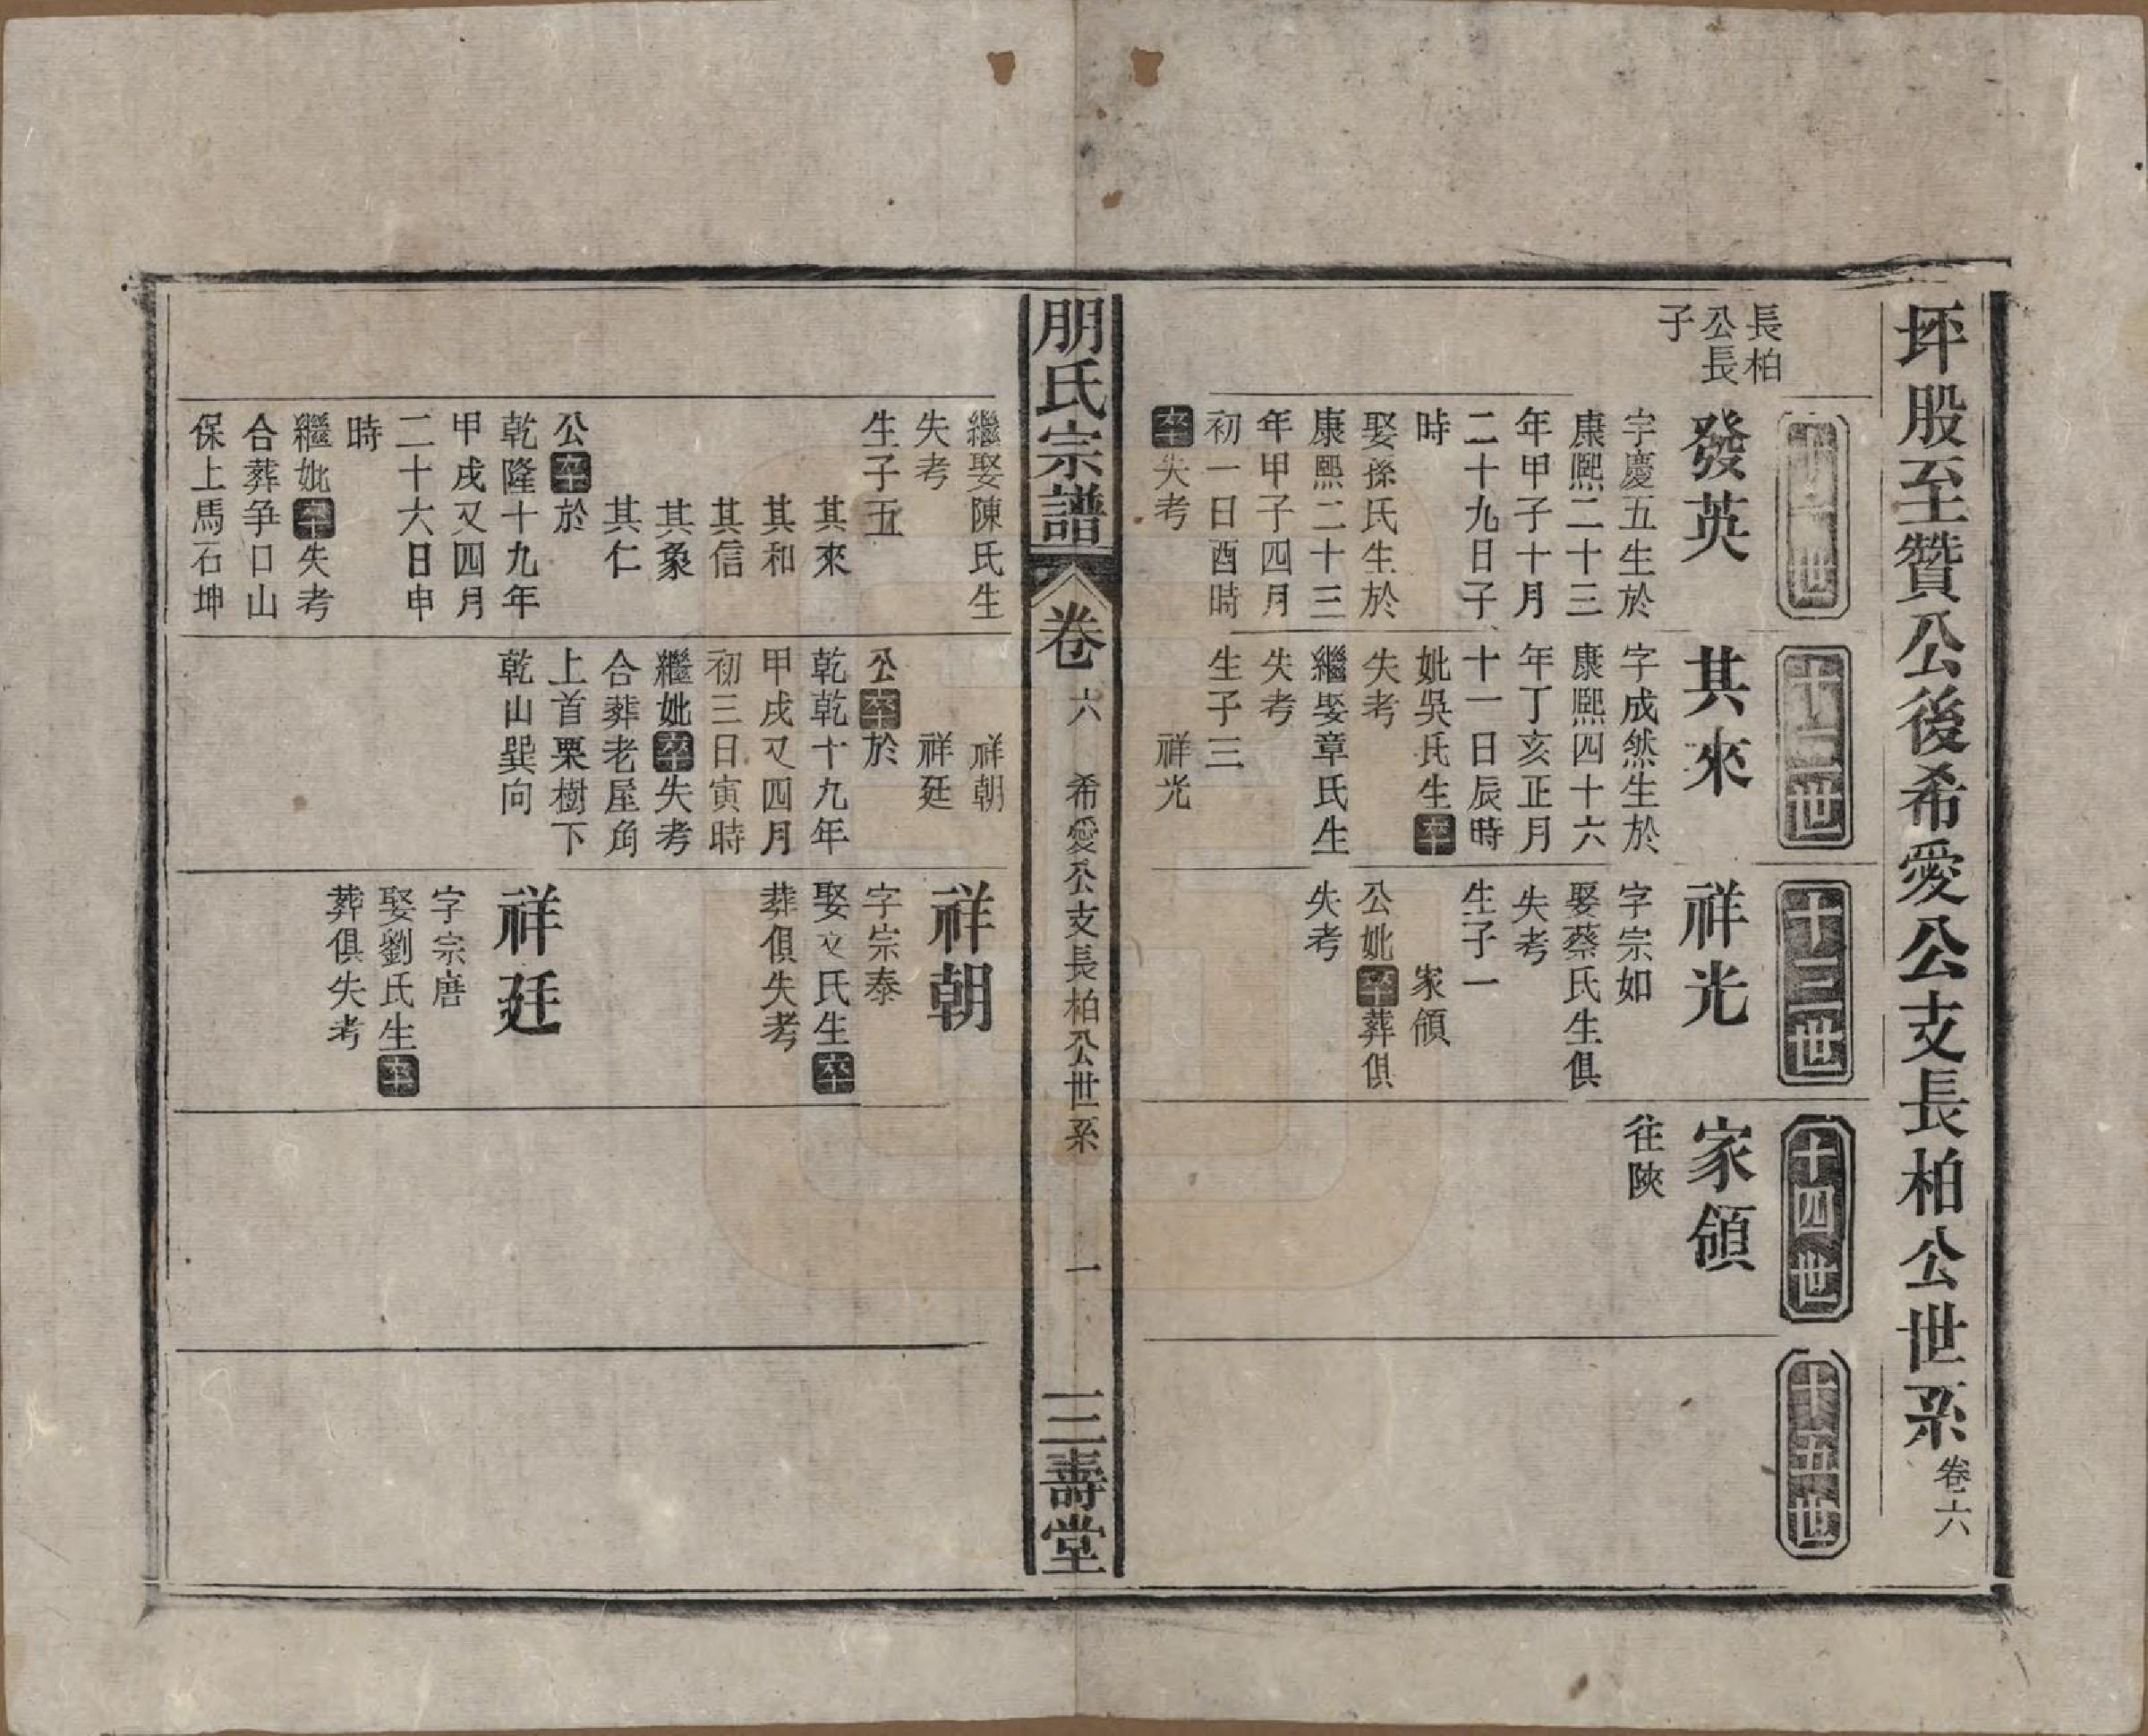 坪股至贊公後希愛公支長柏公世系卷六
十二世
十三世
十四世
十五世
長柏
公長
子
發英
字慶五生於
康熙二十三
年甲子十月
二十九日子
時
娶孫氏生於
康熙二十三
年甲子四月
初一日酉時
卒失考
其來
字成然生於
康熙四十六
年丁亥正月
十一日辰時
妣吳氏生卒
失考
繼娶章氏生
失考
生子三
祥光
祥光
字宗如
娶蔡氏生俱
失考
生子一
家領
公妣卒葬俱
失考
家領
往陝
朋氏宗譜
卷六
希愛公支長柏公世系
一
三壽堂
繼娶陳氏生
失考
生子五
其來
其和
其信
其象
其仁
公卒於
乾隆十九年
甲戌又四月
二十六日申
時
繼妣卒失考
合葬爭口山
保上馬石坤
祥朝
祥廷
公卒於
乾乾十九年
甲戌又四月
初三日寅時
繼妣卒失考
合葬老屋角
上首栗樹下
乾山巽向
祥朝
字宗泰
娶文氏生卒
葬俱失考
祥廷
字宗唐
娶劉氏生卒
葬俱失考